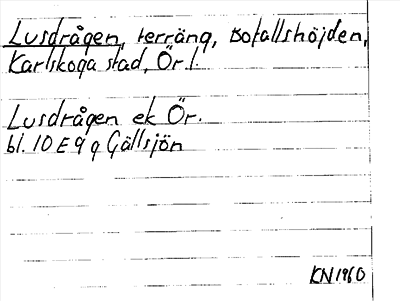 Lusdrågen, terräng, Bofallshöjden,
Karlskoga stad, Ör. l.
Lusdrågen ek Ör.
bl. 10 E 9 g Gällsjön
KN 1960